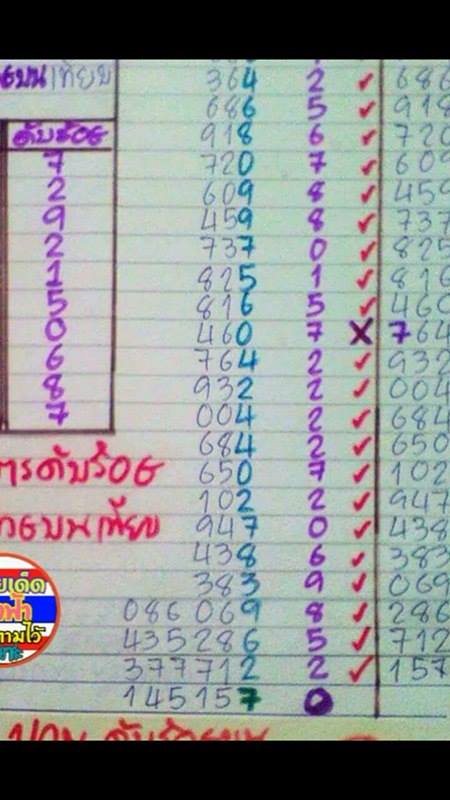 บนเทียบ
ดับร้อง
7
2
9
2
1
5
0
6
8
7
ดับร้อง
บนเทียบ
เด็ด
ฟ้า
ตามไว้
364 2 ✓ 686
686 5 ✓ 918
918 6 ✓ 720
720 7 ✓ 609
609 8 ✓ 459
459 8 ✓ 737
737 0 ✓ 825
825 1 ✓ 816
816 5 ✓ 460
460 7 X 764
764 2 ✓ 932
932 2 ✓ 004
004 2 ✓ 684
684 2 ✓ 650
650 7 ✓ 102
102 2 ✓ 947
947 0 ✓ 438
438 6 ✓ 383
383 9 ✓ 069
086069 8 ✓ 286
435286 5 ✓ 712
377712 2 ✓ 157
145157 0